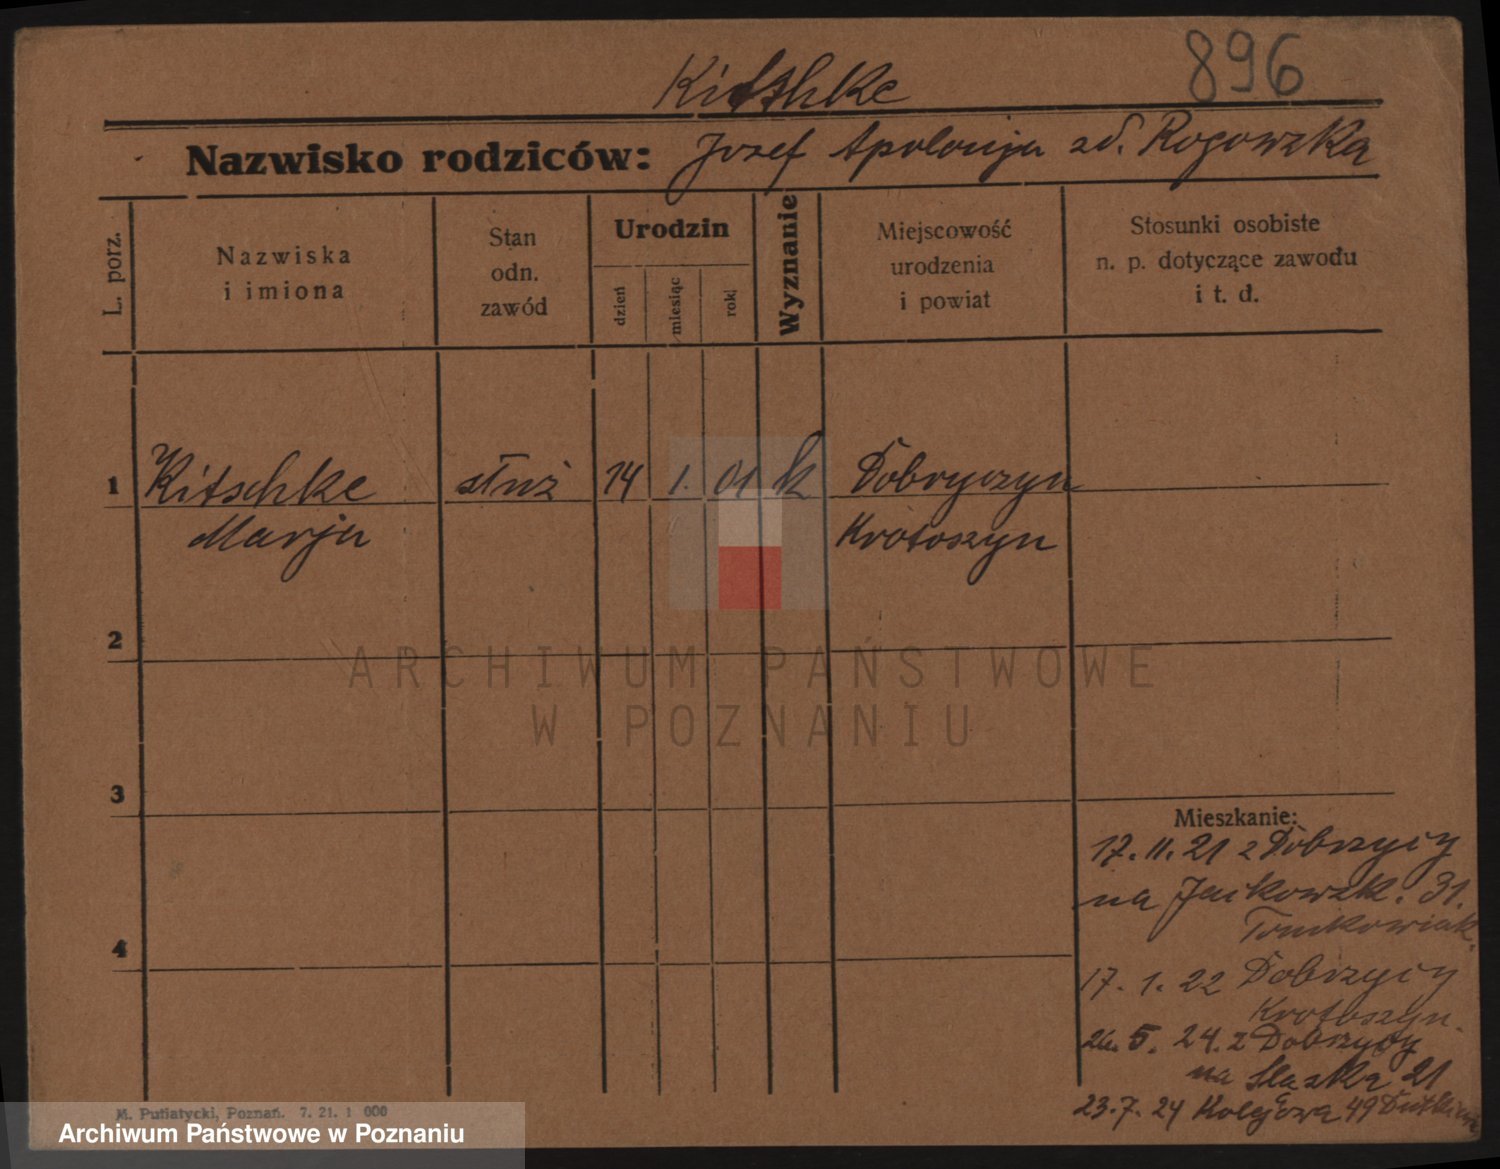 896
Kitshke
Nazwisko rodziców: Jozef Apolonja zd. Rogowska
L. porz.
Nazwiska
i imiona
Stan
odn.
zawód
Urodzin
dzień
miesiąc
rok
Wyznanie
Miejscowość
urodzenia
i powiat
Stosunki osobiste
n. p. dotyczące zawodu
i t. d.
1 Kitschke służ 14 1. 01 k Dobryczyn
Marja Krotoszyn
2
3
4
Mieszkanie:
17. 11. 21 z Dobrzycy
na Jackowsk. 31.
Tomkowiak.
17. 1. 22 Dobrzycy
Krotoszyn.
26. 5. 24. z Dobrzycy
na Slaska 21
23. 7. 24 Kolejowa 49
M. Putiatycki, Poznań. 7. 21. 1 000
ARCHIWUM PAŃSTWOWE
W POZNANIU
Archiwum Państwowe w Poznaniu